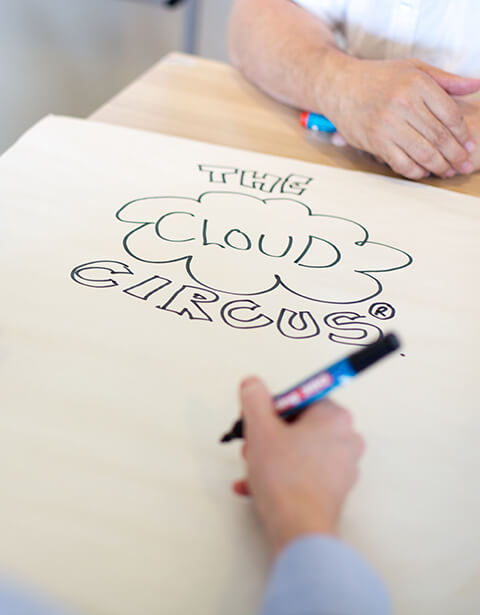 THE
CLOUD
CIRCUS®